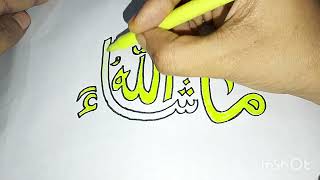 ما شاء الله
InShOt